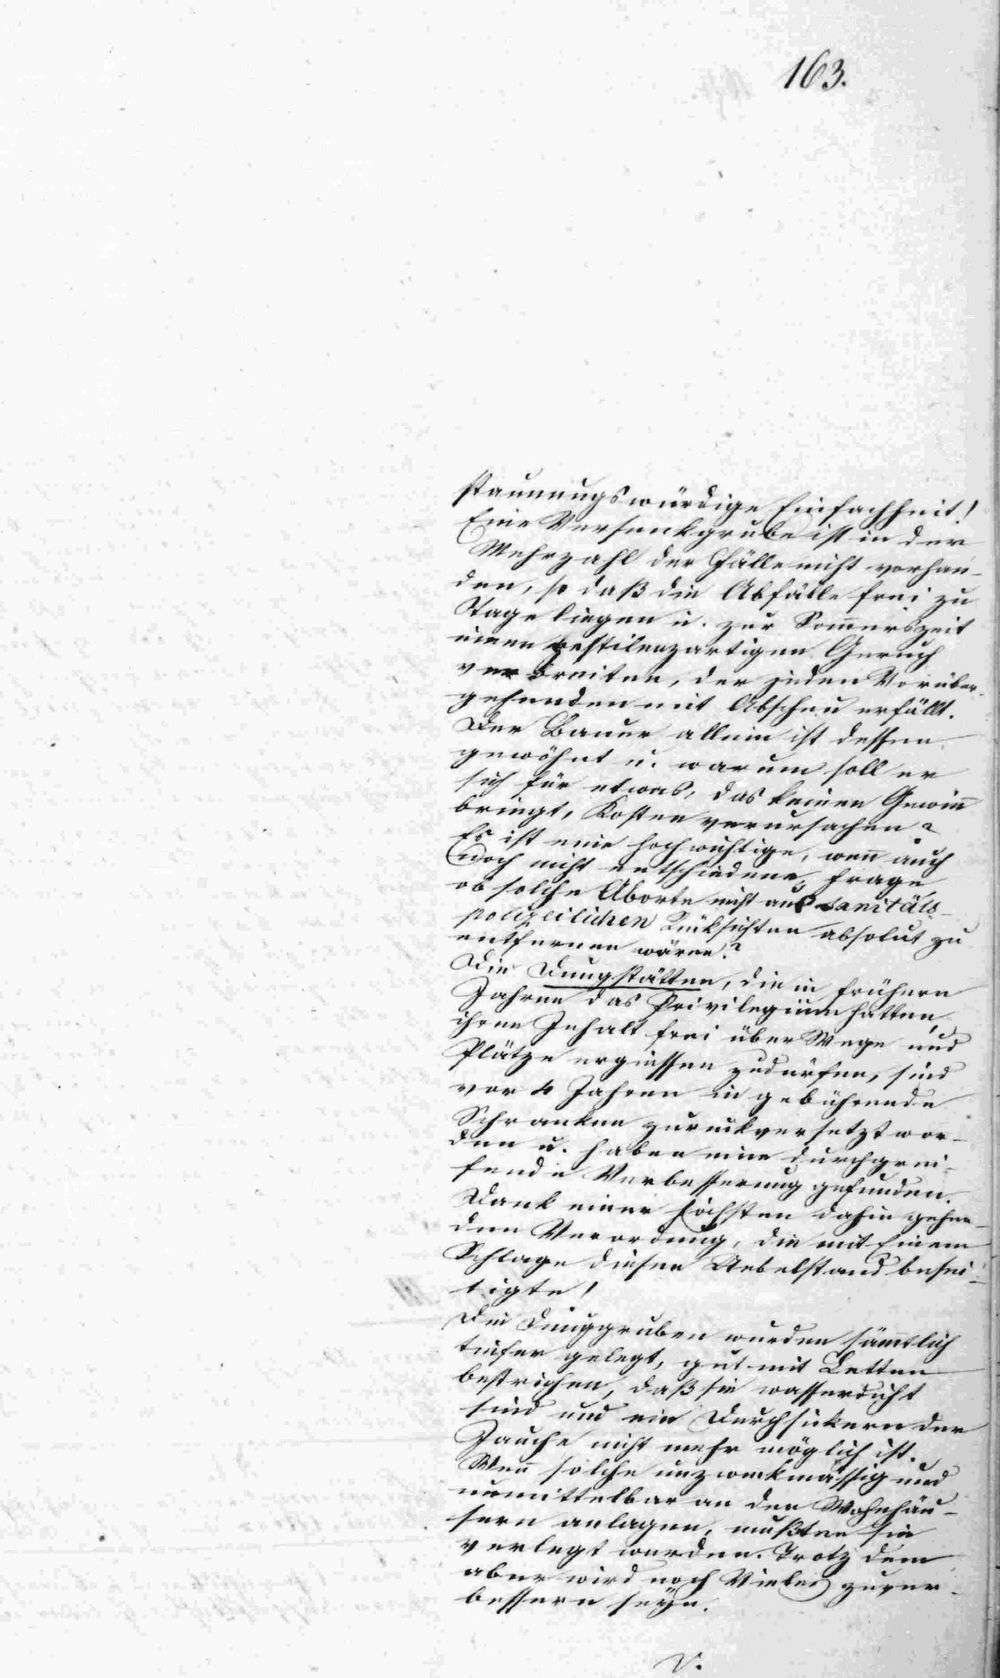 163.
staunungswürdige Einfachheit!
Eine Versenkgrube ist in der
Mehrzahl der Fälle nicht vorhan-
den, so daß die Abfälle frei zu
Tage liegen u. zur Sommerszeit
einen pestilenzartigen Geruch
verbreiten, der jeden Vorüber-
gehenden mit Abscheu erfüllt.
Der Bauer allein ist dessen
gewöhnt u. warum soll er
sich für etwas, das keinen Gewinn
bringt, Kosten verursachen?
Es ist eine hochwichtige, wenn auch
noch nicht entschiedene, Frage
ob solche Aborte nicht aus sanitäts-
polizeilichen Rücksichten absolut zu
entfernen wären?
Die Dungstätten, die in frühern
Jahren das Privilegium hatten,
ihren Inhalt frei über Wege und
Plätze ergiessen zu dürfen, sind
vor 4 Jahren in gebührende
Schranken zurückversetzt wor-
den u. haben eine durchgrei-
fende Verbesserung gefunden.
Dank einer höchsten dahin gehen-
den Verordnung, die mit Einem
Schlage diesen Uebelstand besei-
tigte!
Die Dunggruben wurden sämtlich
tiefer gelegt, gut mit Letten
bestrichen, daß sie wasserdicht
sind und ein Durchsickern der
Jauche nicht mehr möglich ist.
Wenn solche unzweckmässig und
unmittelbar an den Wohnhäu-
sern anlagen, mußten sie
verlegt werden. Trotz dem
aber wird noch Vieles zu ver-
bessern seyn.
V.